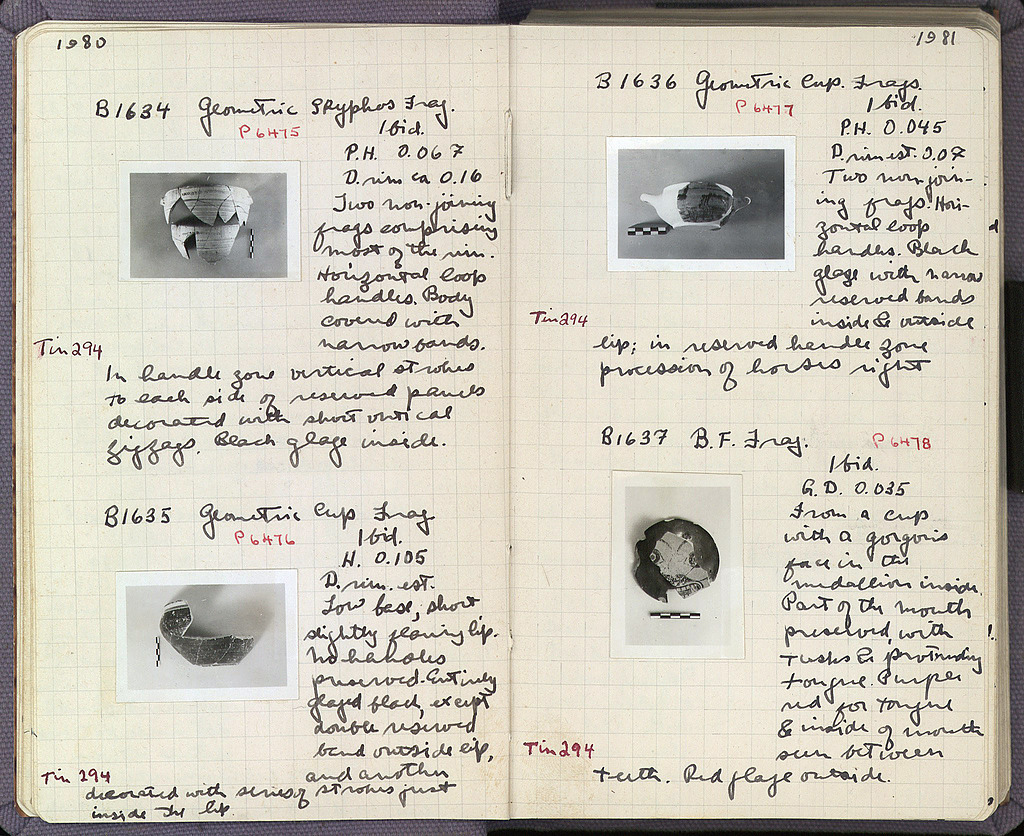 1980
B1634 Geometric Skyphos Frag.
P 6475
Ibid.
P.H. 0.067
D. rim ca 0.16
Two non-joining
frags comprising
most of the rim.
Horizontal loop
handles. Body
covered with
narrow bands.
Tin 294
In handle zone vertical strokes
to each side of reserved panels
decorated with short vertical
zigzags. Black glaze inside.
B1635 Geometric Cup Frag
P 6476
Ibid.
H. 0.105
D. rim. est.
Low base, short
slightly flaring lip.
No handles
preserved. Entirely
glazed black, except
double reserved
band outside lip,
and another
Tin 294
decorated with series of strokes just
inside the lip.
1981
B1636 Geometric Cup. Frags.
P 6477
Ibid.
P.H. 0.045
D. rim est. 0.07
Two non-join-
ing frags. Hori-
zontal loop
handles. Black
glaze with narrow
reserved bands
inside & outside
Tin 294
lip; in reserved handle zone
procession of horses right
B1637 B.F. Frag.
P 6478
Ibid.
G.D. 0.035
From a cup
with a gorgon's
face in the
medallion inside.
Part of the mouth
preserved, with
tusks & protruding
tongue. Purple
red for tongue
& inside of mouth
seen between
Tin 294
teeth. Red glaze outside.